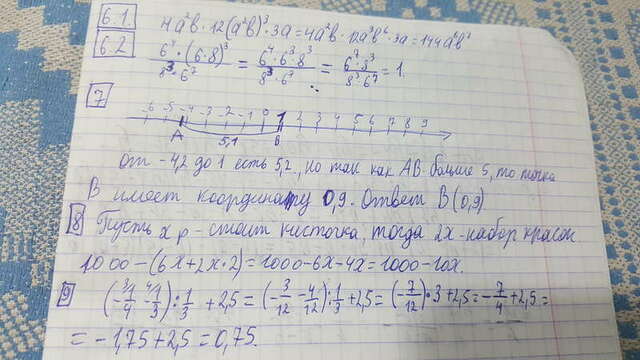 6.1 4a²b · 12(a²b)³ · 3a = 4a²b · 12a⁶b³ · 3a = 144a⁹b⁴
6.2 6⁴ · (6·8)³ / 8³ · 6⁷ = 6⁴ · 6³ · 8³ / 8³ · 6⁷ = 6⁷ · 8³ / 8³ 6⁷ = 1.
7
-6 -5 -4 -3 -2 -1 0 1 2 3 4 5 6 7 8 9
A 5,1 B
от -4,2 до 1 есть 5,2, но так как AB больше 5, то точка
B имеет координату 0,9. Ответ B(0,9)
8 Пусть x р - стоит кисточка, тогда 2x - набор красок
1000 - (6x + 2x · 2) = 1000 - 6x - 4x = 1000 - 10x.
9 (1/4 - 1/3) : 1/3 + 2,5 = (3/12 - 4/12) : 1/3 + 2,5 = (-7/12) · 3 + 2,5 = -7/4 + 2,5 =
= -1,75 + 2,5 = 0,75